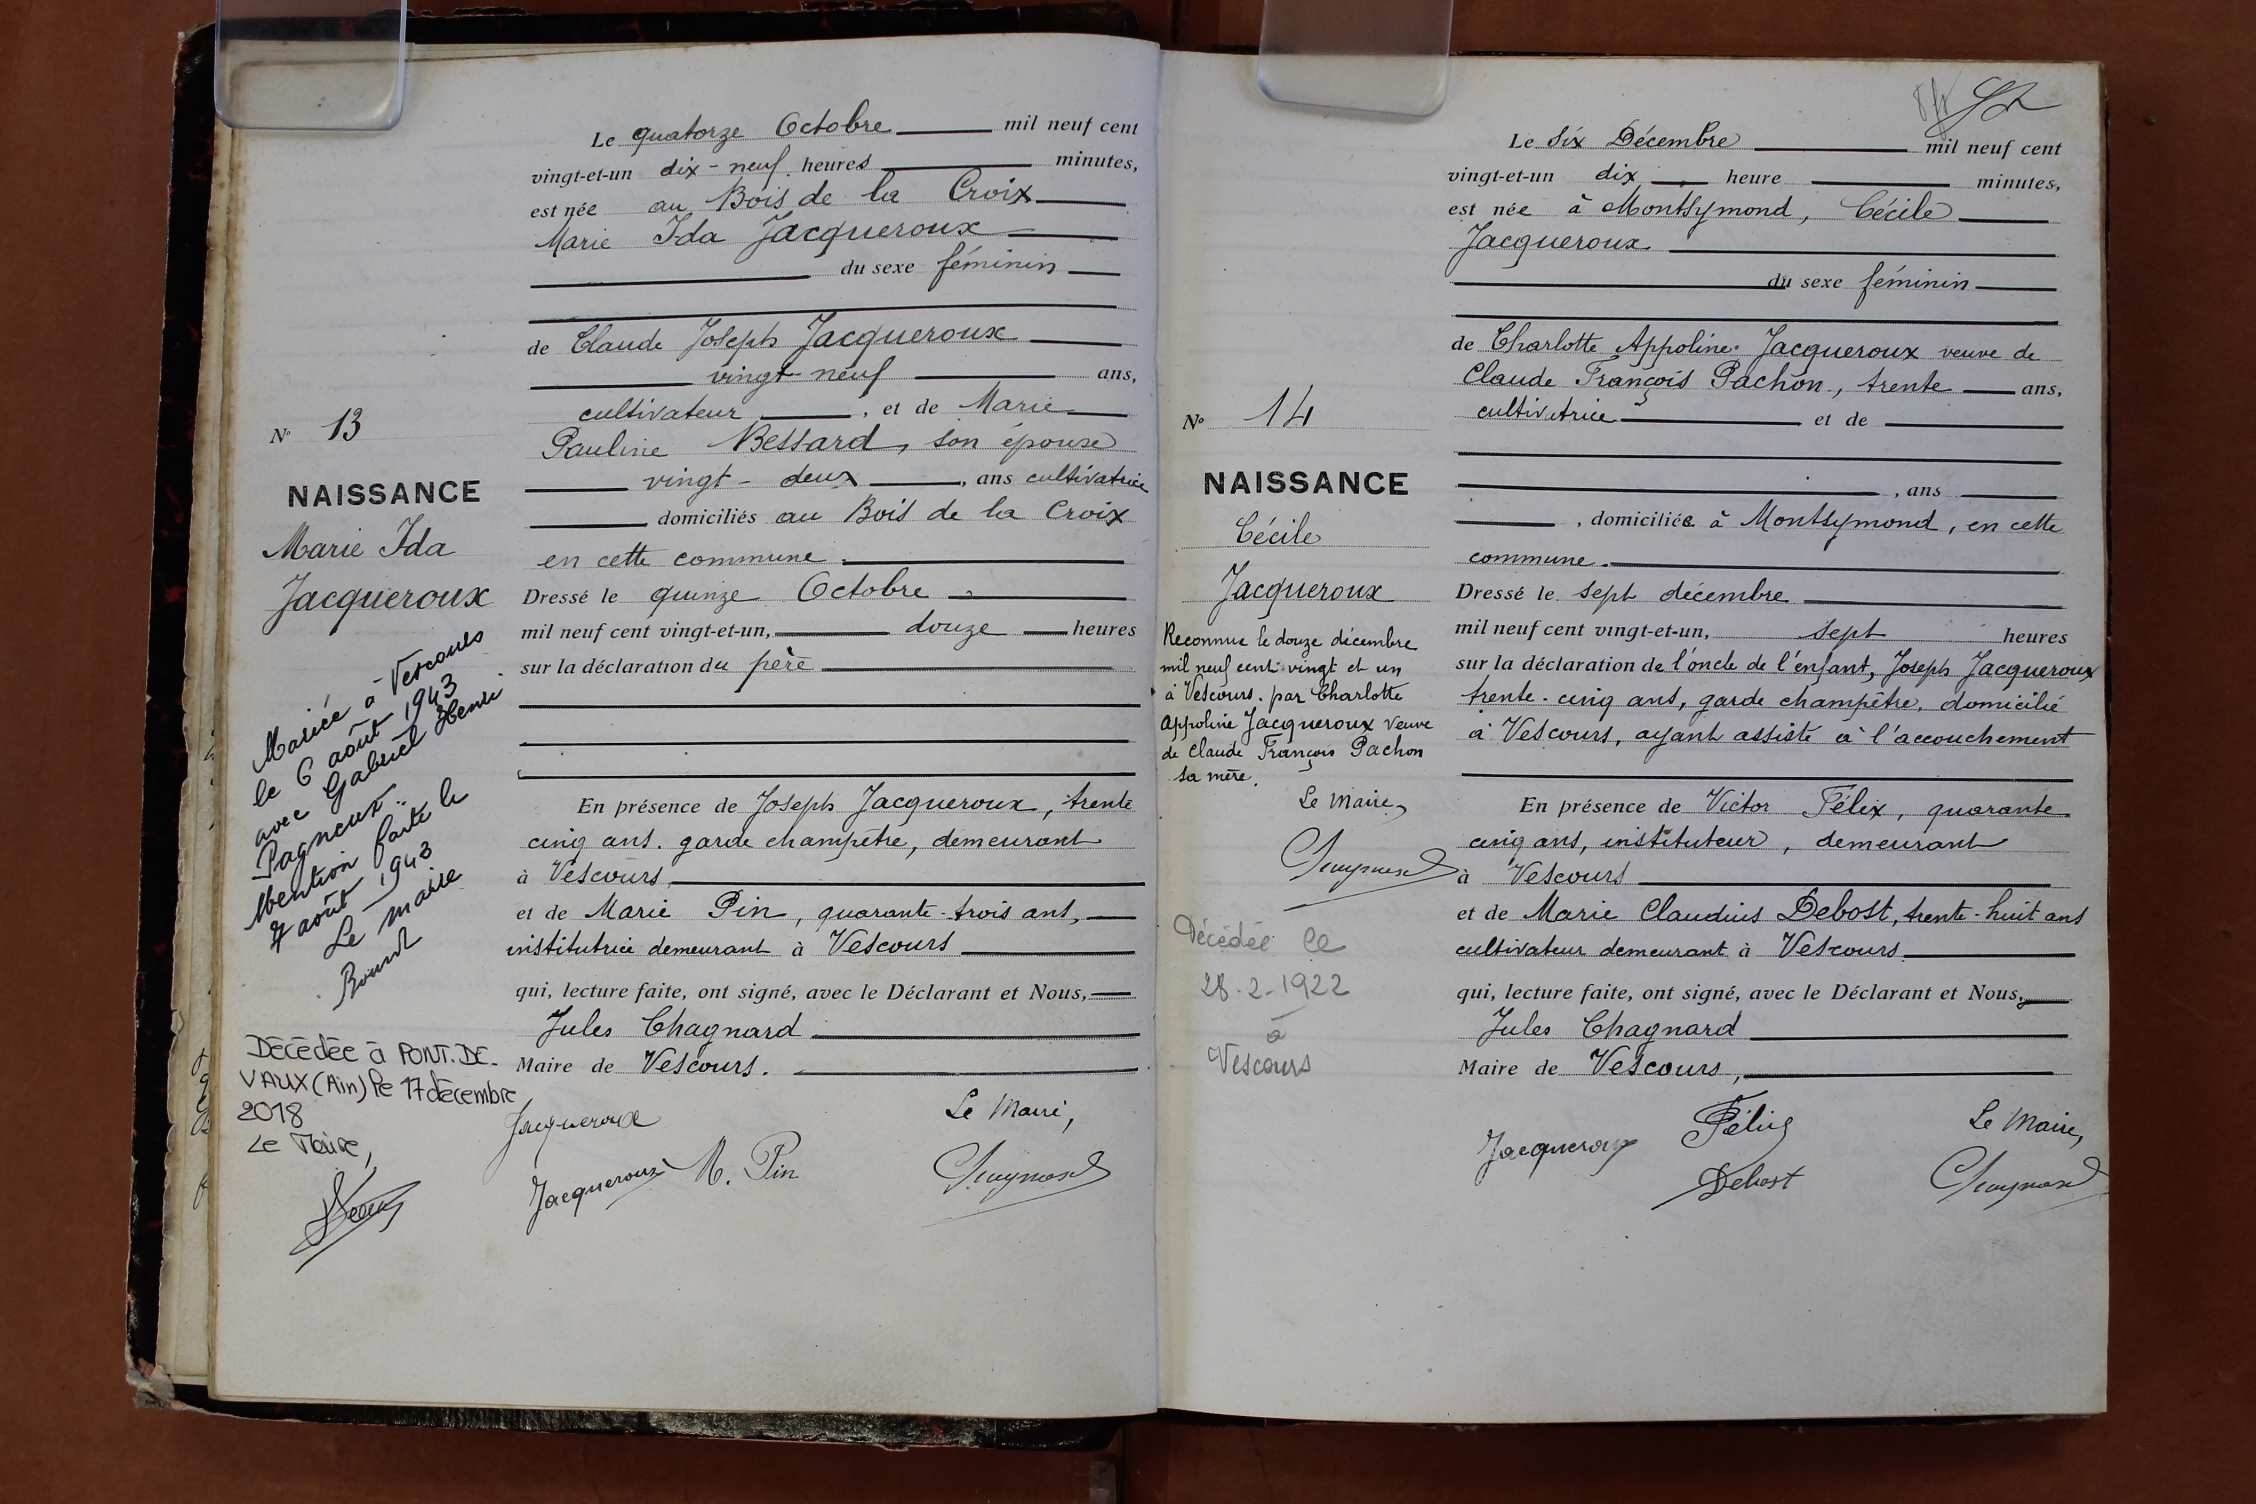 N° 13
NAISSANCE
Marie Ida
Jacqueroux
Mariée à Vescours
le 6 août 1943
avec Gabriel Henri
Pagneux
Mention faite le
7 août 1943
Le maire
Décédée à PONT-DE-
VAUX (Ain) le 17 décembre
2018
Le Maire,
Le quatorze Octobre mil neuf cent
vingt-et-un dix-neuf heures minutes,
est née au Bois de la Croix
Marie Ida Jacqueroux
du sexe féminin
de Claude Joseph Jacqueroux
vingt neuf ans,
cultivateur, et de Marie
Pauline Bessard, son épouse
vingt-deux, ans cultivatrice
domiciliés au Bois de la Croix
en cette commune
Dressé le quinze Octobre
mil neuf cent vingt-et-un, douze heures
sur la déclaration du père
En présence de Joseph Jacqueroux, trente
cinq ans. garde champêtre, demeurant
à Vescours
et de Marie Pin, quarante-trois ans,
institutrice demeurant à Vescours
qui, lecture faite, ont signé, avec le Déclarant et Nous,
Jules Chagnard
Maire de Vescours.
Jacqueroux
Le Maire,
Jacqueroux M. Pin
N° 14
NAISSANCE
Cécile
Jacqueroux
Reconnue le douze décembre
mil neuf cent vingt et un
à Vescours par Charlotte
Appoline Jacqueroux veuve
de Claude François Pachon
sa mère.
Le Maire,
Décédée le
28-2-1922
à
Vescours
Le six Décembre mil neuf cent
vingt-et-un dix heure minutes,
est née à Montsymond, Cécile
Jacqueroux
du sexe féminin
de Charlotte Appoline Jacqueroux veuve de
Claude François Pachon, trente ans,
cultivatrice et de
, ans
, domiciliée à Montsymond, en cette
commune.
Dressé le sept décembre
mil neuf cent vingt-et-un, sept heures
sur la déclaration de l'oncle de l'enfant, Joseph Jacqueroux
trente-cinq ans, garde champêtre, domicilié
à Vescours, ayant assisté à l'accouchement
En présence de Victor Félix, quarante
cinq ans, instituteur, demeurant
à Vescours
et de Marie Claudius Debost, trente-huit ans
cultivateur demeurant à Vescours
qui, lecture faite, ont signé, avec le Déclarant et Nous,
Jules Chagnard
Maire de Vescours,
Jacqueroux Félix Le Maire,
Debost